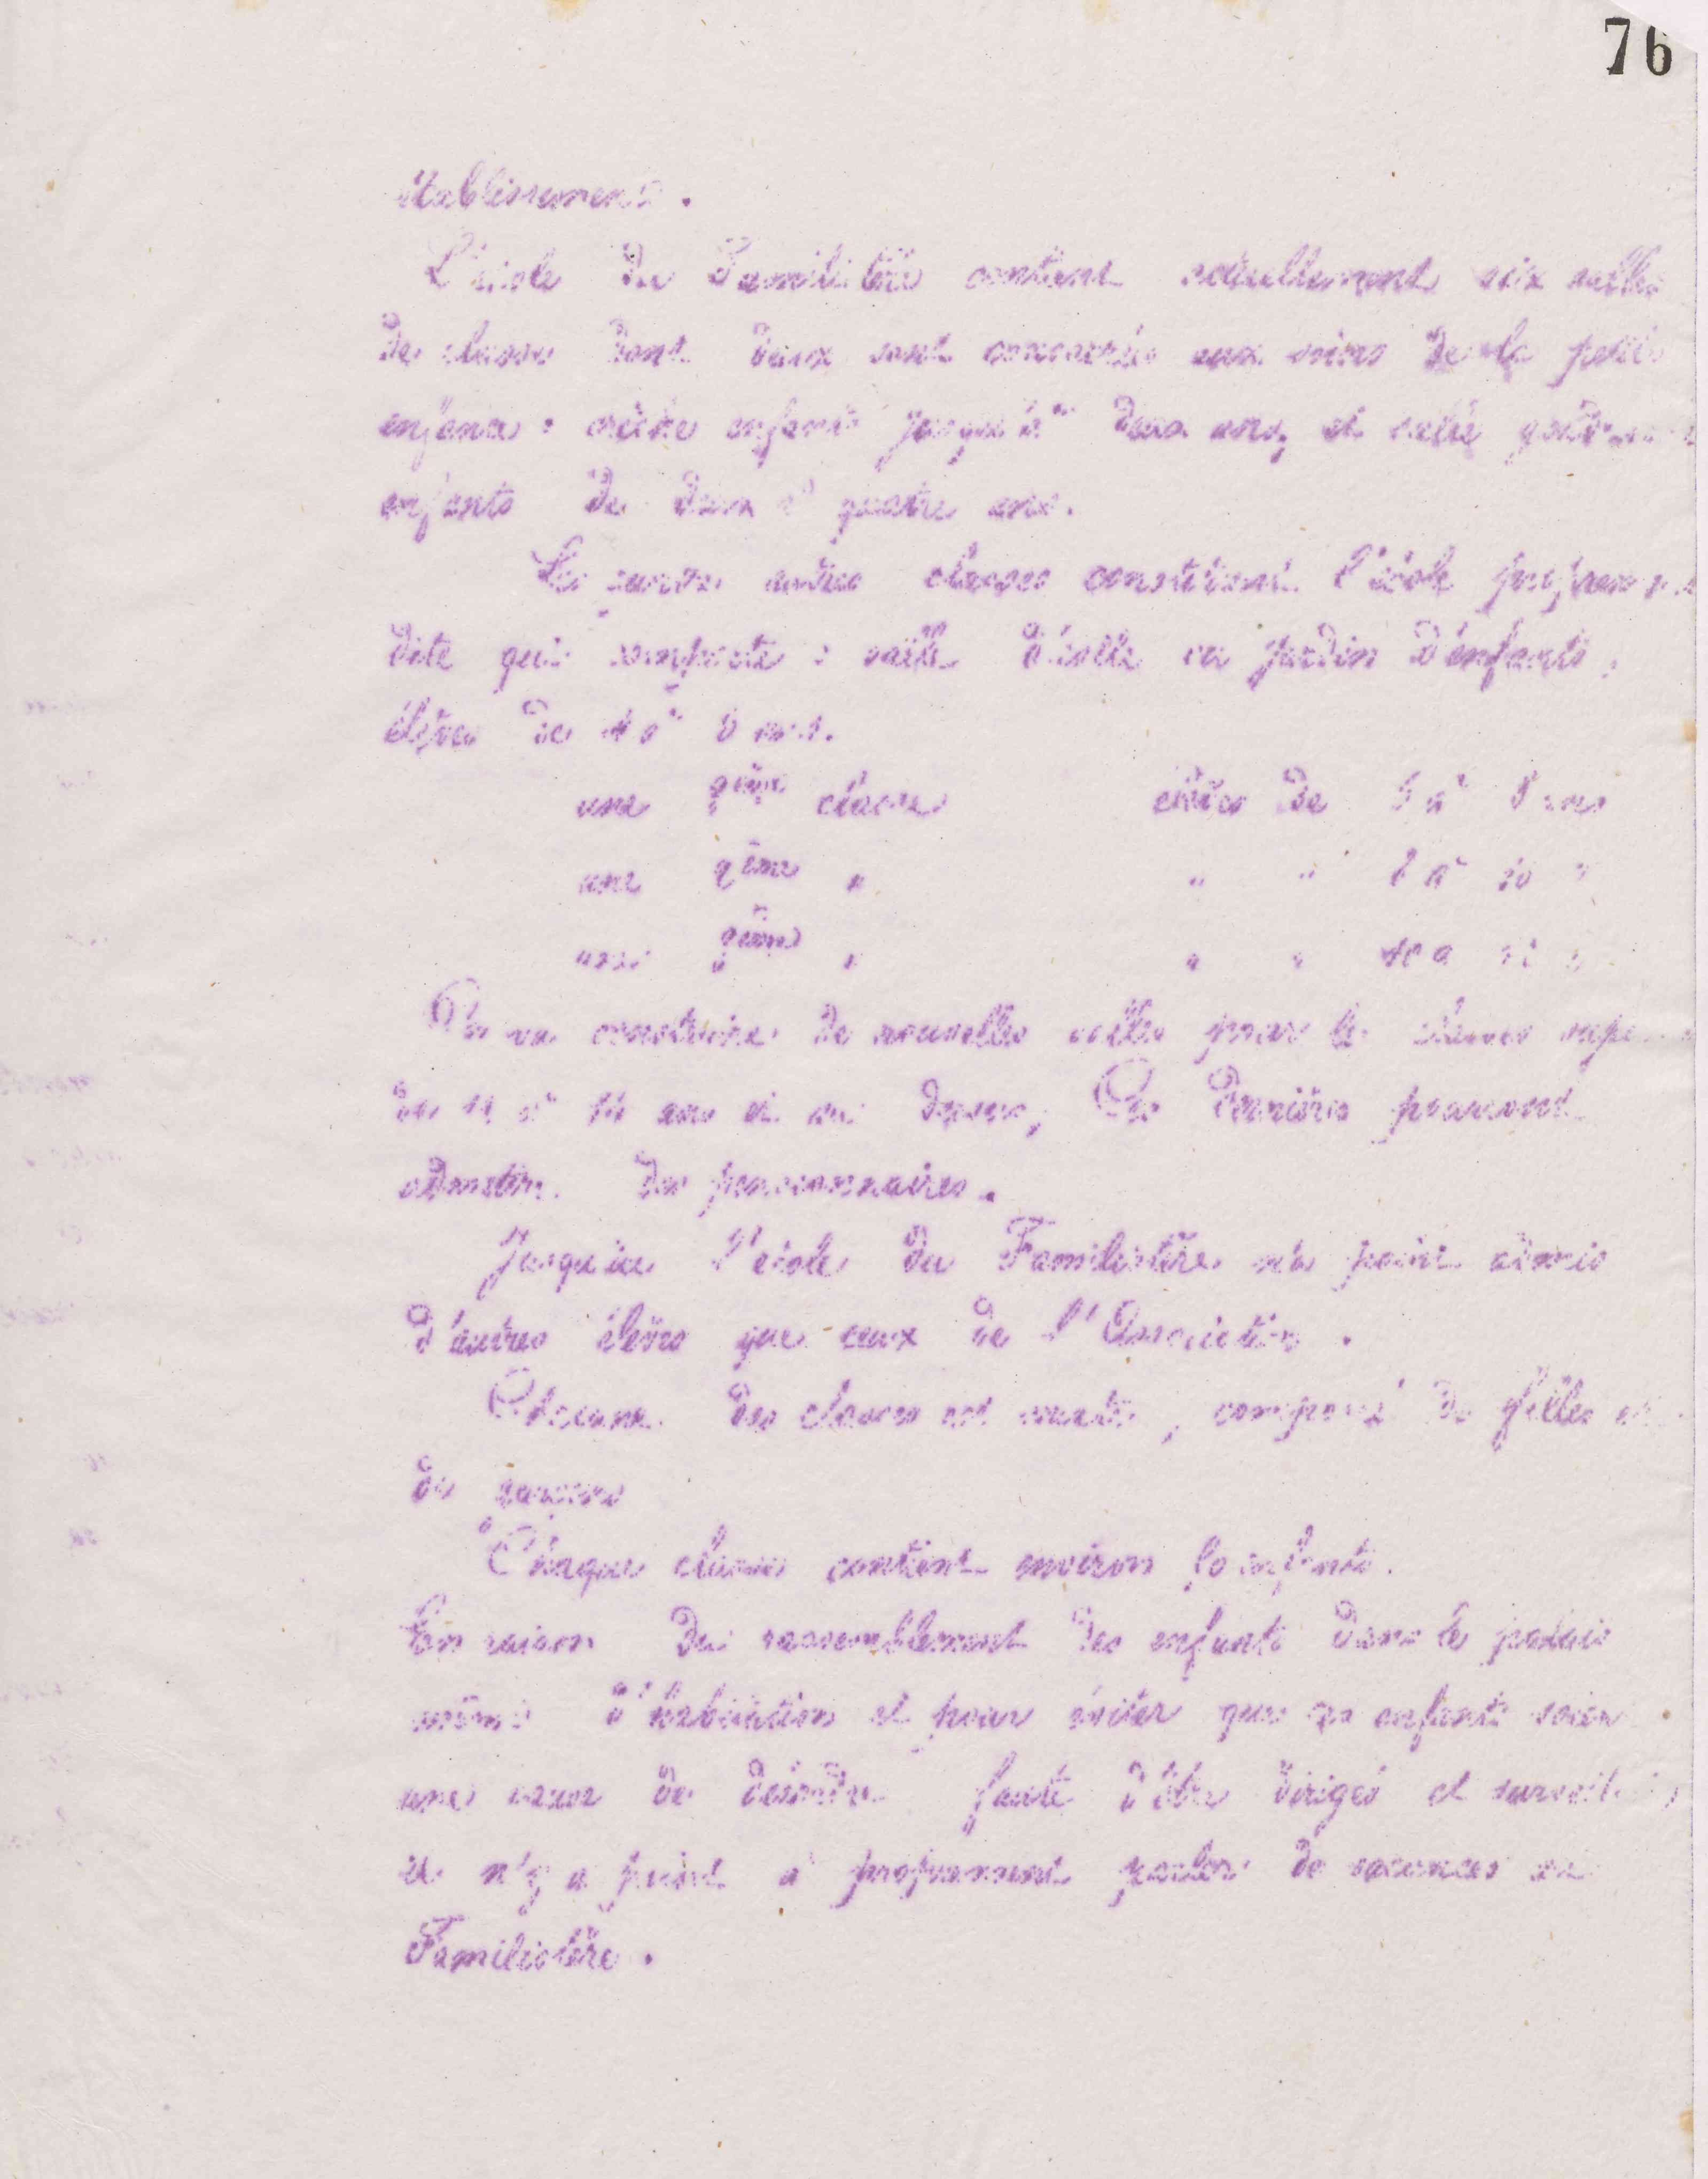 76
établissement.
L'école du Familistère contient actuellement six salles
de classe dont deux sont consacrées aux soins de la petite
enfance : crèche enfants jusqu'à deux ans, et salle gardienne
enfants de deux à quatre ans.
Les quatre autres classes constituent l'école proprement
dite qui comporte : salle d'asile ou jardin d'enfants,
élèves de 4 à 6 ans.
une classe élèves de 6 à 8 ans
une 2ème " " " 8 à 10 "
une " " " 10 à "
On va construire de nouvelles salles pour les classes
de 11 à 14 ans et au dessus, Ces dernières pourront
admettre des pensionnaires.
Jusqu'ici l'école du Familistère n'a point admis
d'autres élèves que ceux de l'Association.
Chacune des classes est mixte, composé de filles et
de garçons
Chaque classe contient environ 50 enfants.
En raison du rassemblement des enfants dans le palais
même d'habitation et pour éviter que ces enfants soient
une cause de désordre faute d'être dirigés et surveillés,
il n'y a point à proprement parler de vacances au
Familistère.